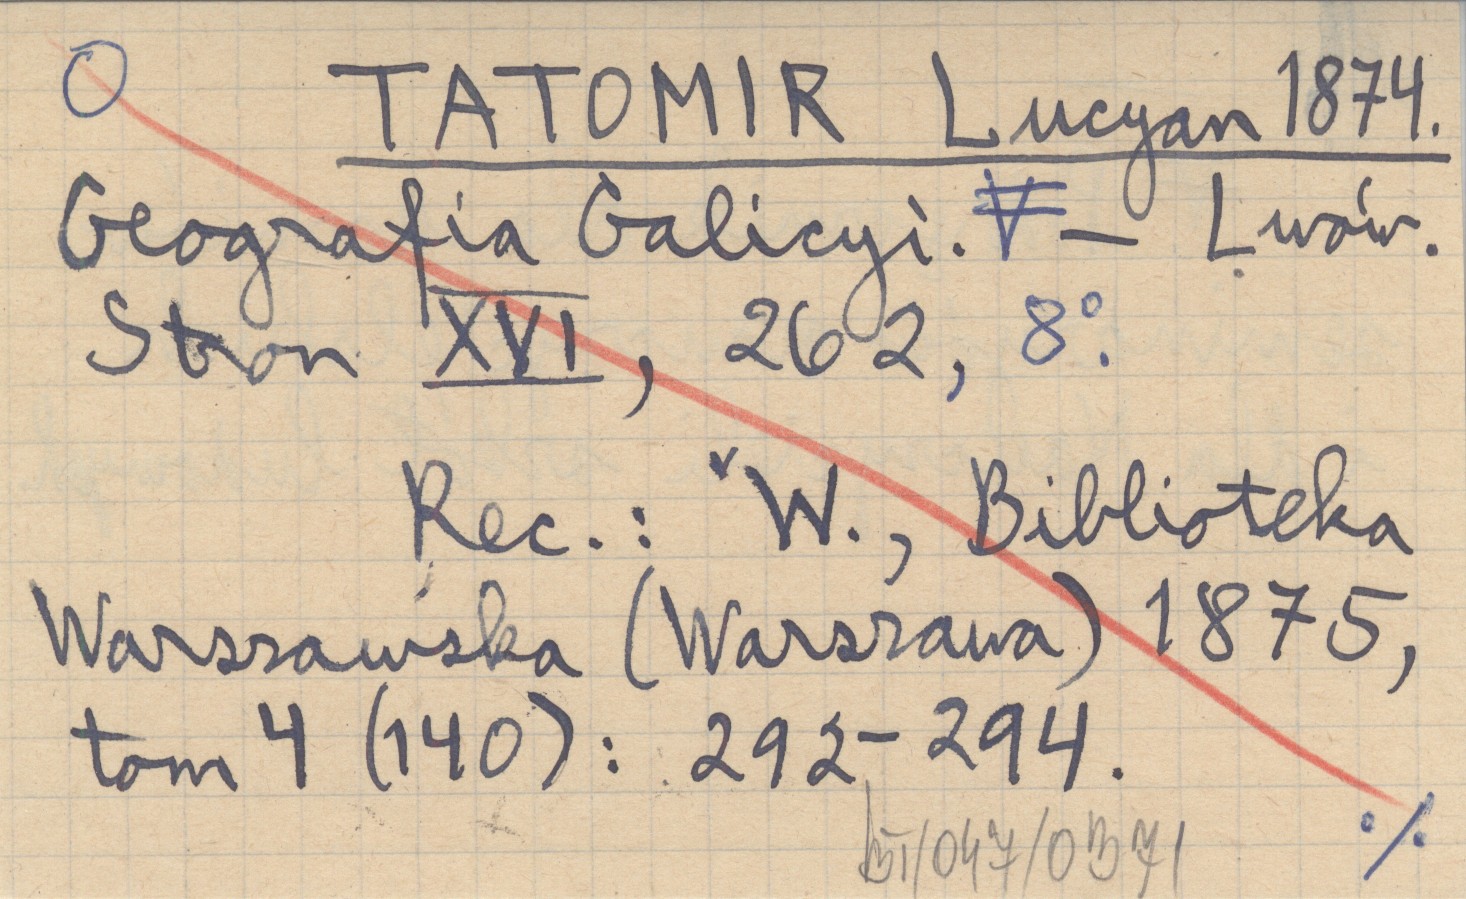 O TATOMIR Lucyan 1874.
Geografia Galicyi. — Lwów.
Stron XVI, 262, 8°.
Rec.: W., Biblioteka
Warszawska (Warszawa) 1875,
tom 4 (140): 292-294.